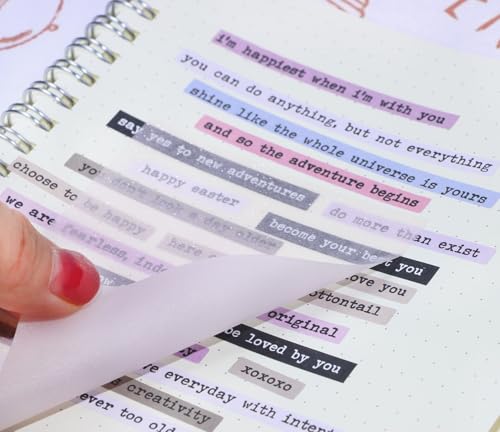 i'm happiest when i'm with you
you can do anything, but not everything
shine like the whole universe is yours
and so the adventure begins
say yes to new adventures
happy easter
do more than exist
you don't look a day older
become your best you
choose to be happy
here
we are fearless,
love you
ottontail
original
be loved by you
xoxoxo
everyday with
creativity
ever too old